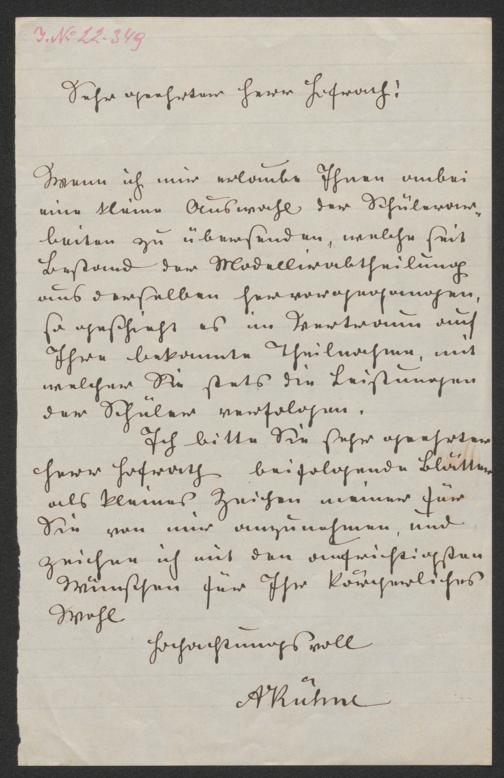 J. No 22.349
Sehr geehrter Herr Hofrath!
Wenn ich mir erlaube Ihnen anbei
eine kleine Auswahl der Schülerar-
beiten zu übersenden, welche seit
Bestand der Modellirabtheilung
aus derselben hervorgegangen,
so geschieht es im Vertrauen auf
Ihre bekannte Theilnahme, mit
welcher Sie stets die Leistungen
der Schüler verfolgen.
Ich bitte Sie sehr geehrter
Herr Hofrath beifolgende Blätter
als kleines Zeichen meiner für
Sie von mir anzunehmen, und
zeichne ich mit den aufrichtigsten
Wünschen für Ihr körperliches
Wohl
Hochachtungsvoll
AKühne